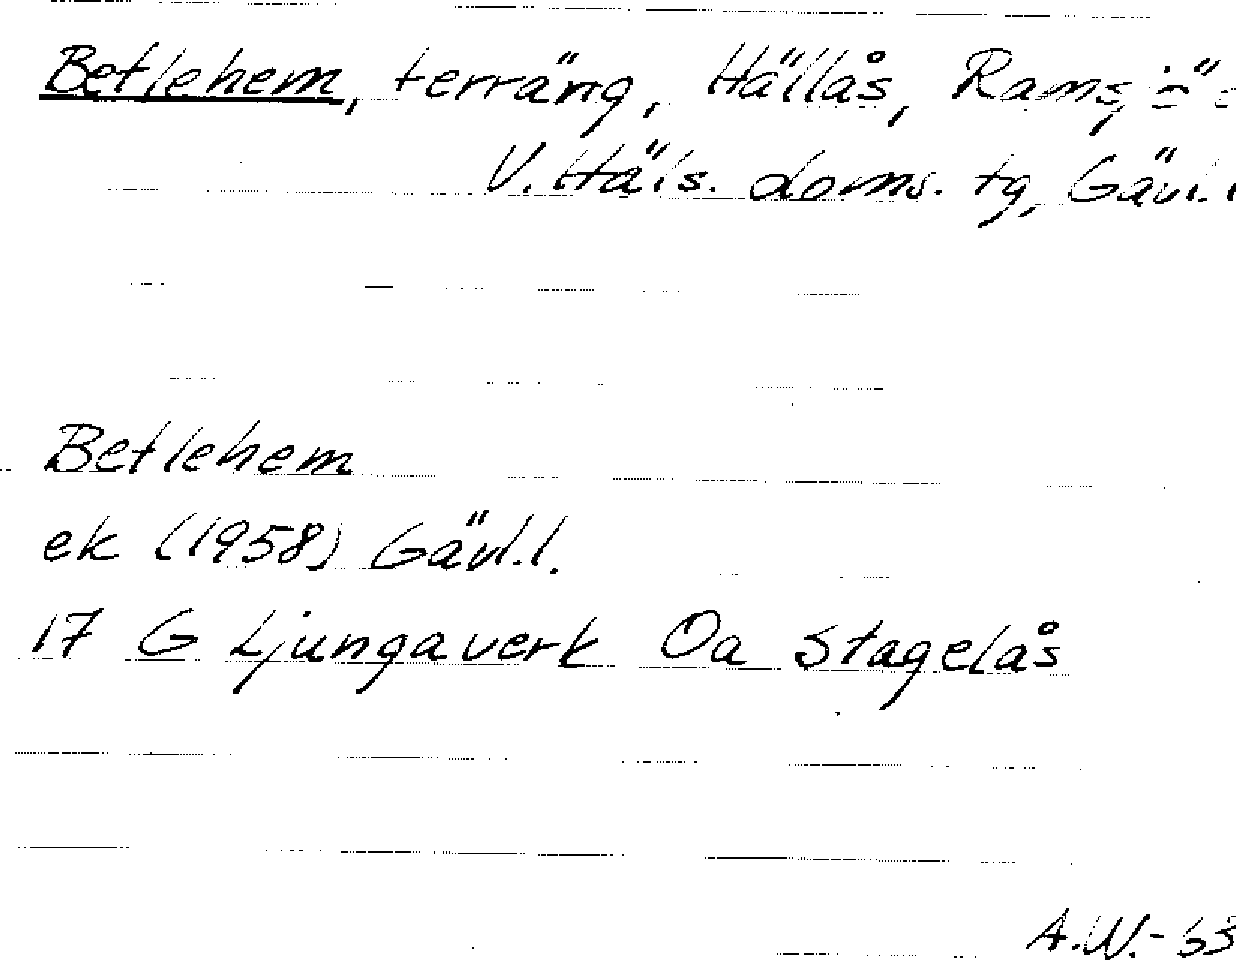 Betlehem, terräng, Hällås, Ramsjö
V. Häls. doms. tg, Gävl.l
Betlehem
ek (1958) Gävl.l.
17 G Ljungaverk Oa Stagelås
A.W.-